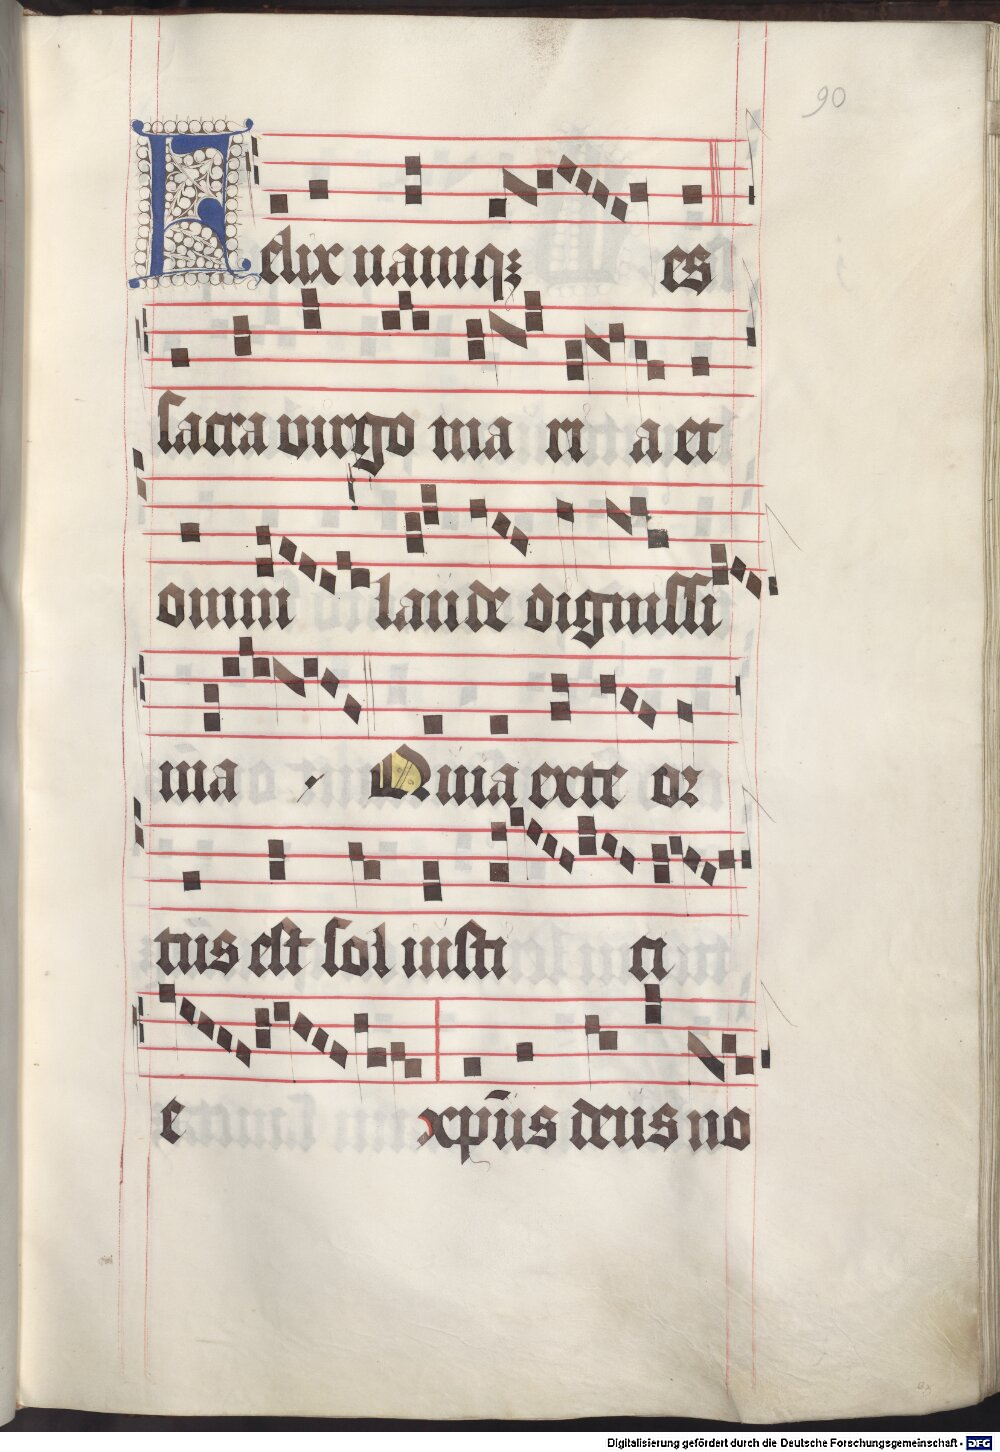 90
Felix namqꝫ es
sacra virgo ma ri a et
omni laude dignissi
ma . Quia ex te or
tus est sol iusti ci
e xp̄us deus no
Digitalisierung gefördert durch die Deutsche Forschungsgemeinschaft - DFG